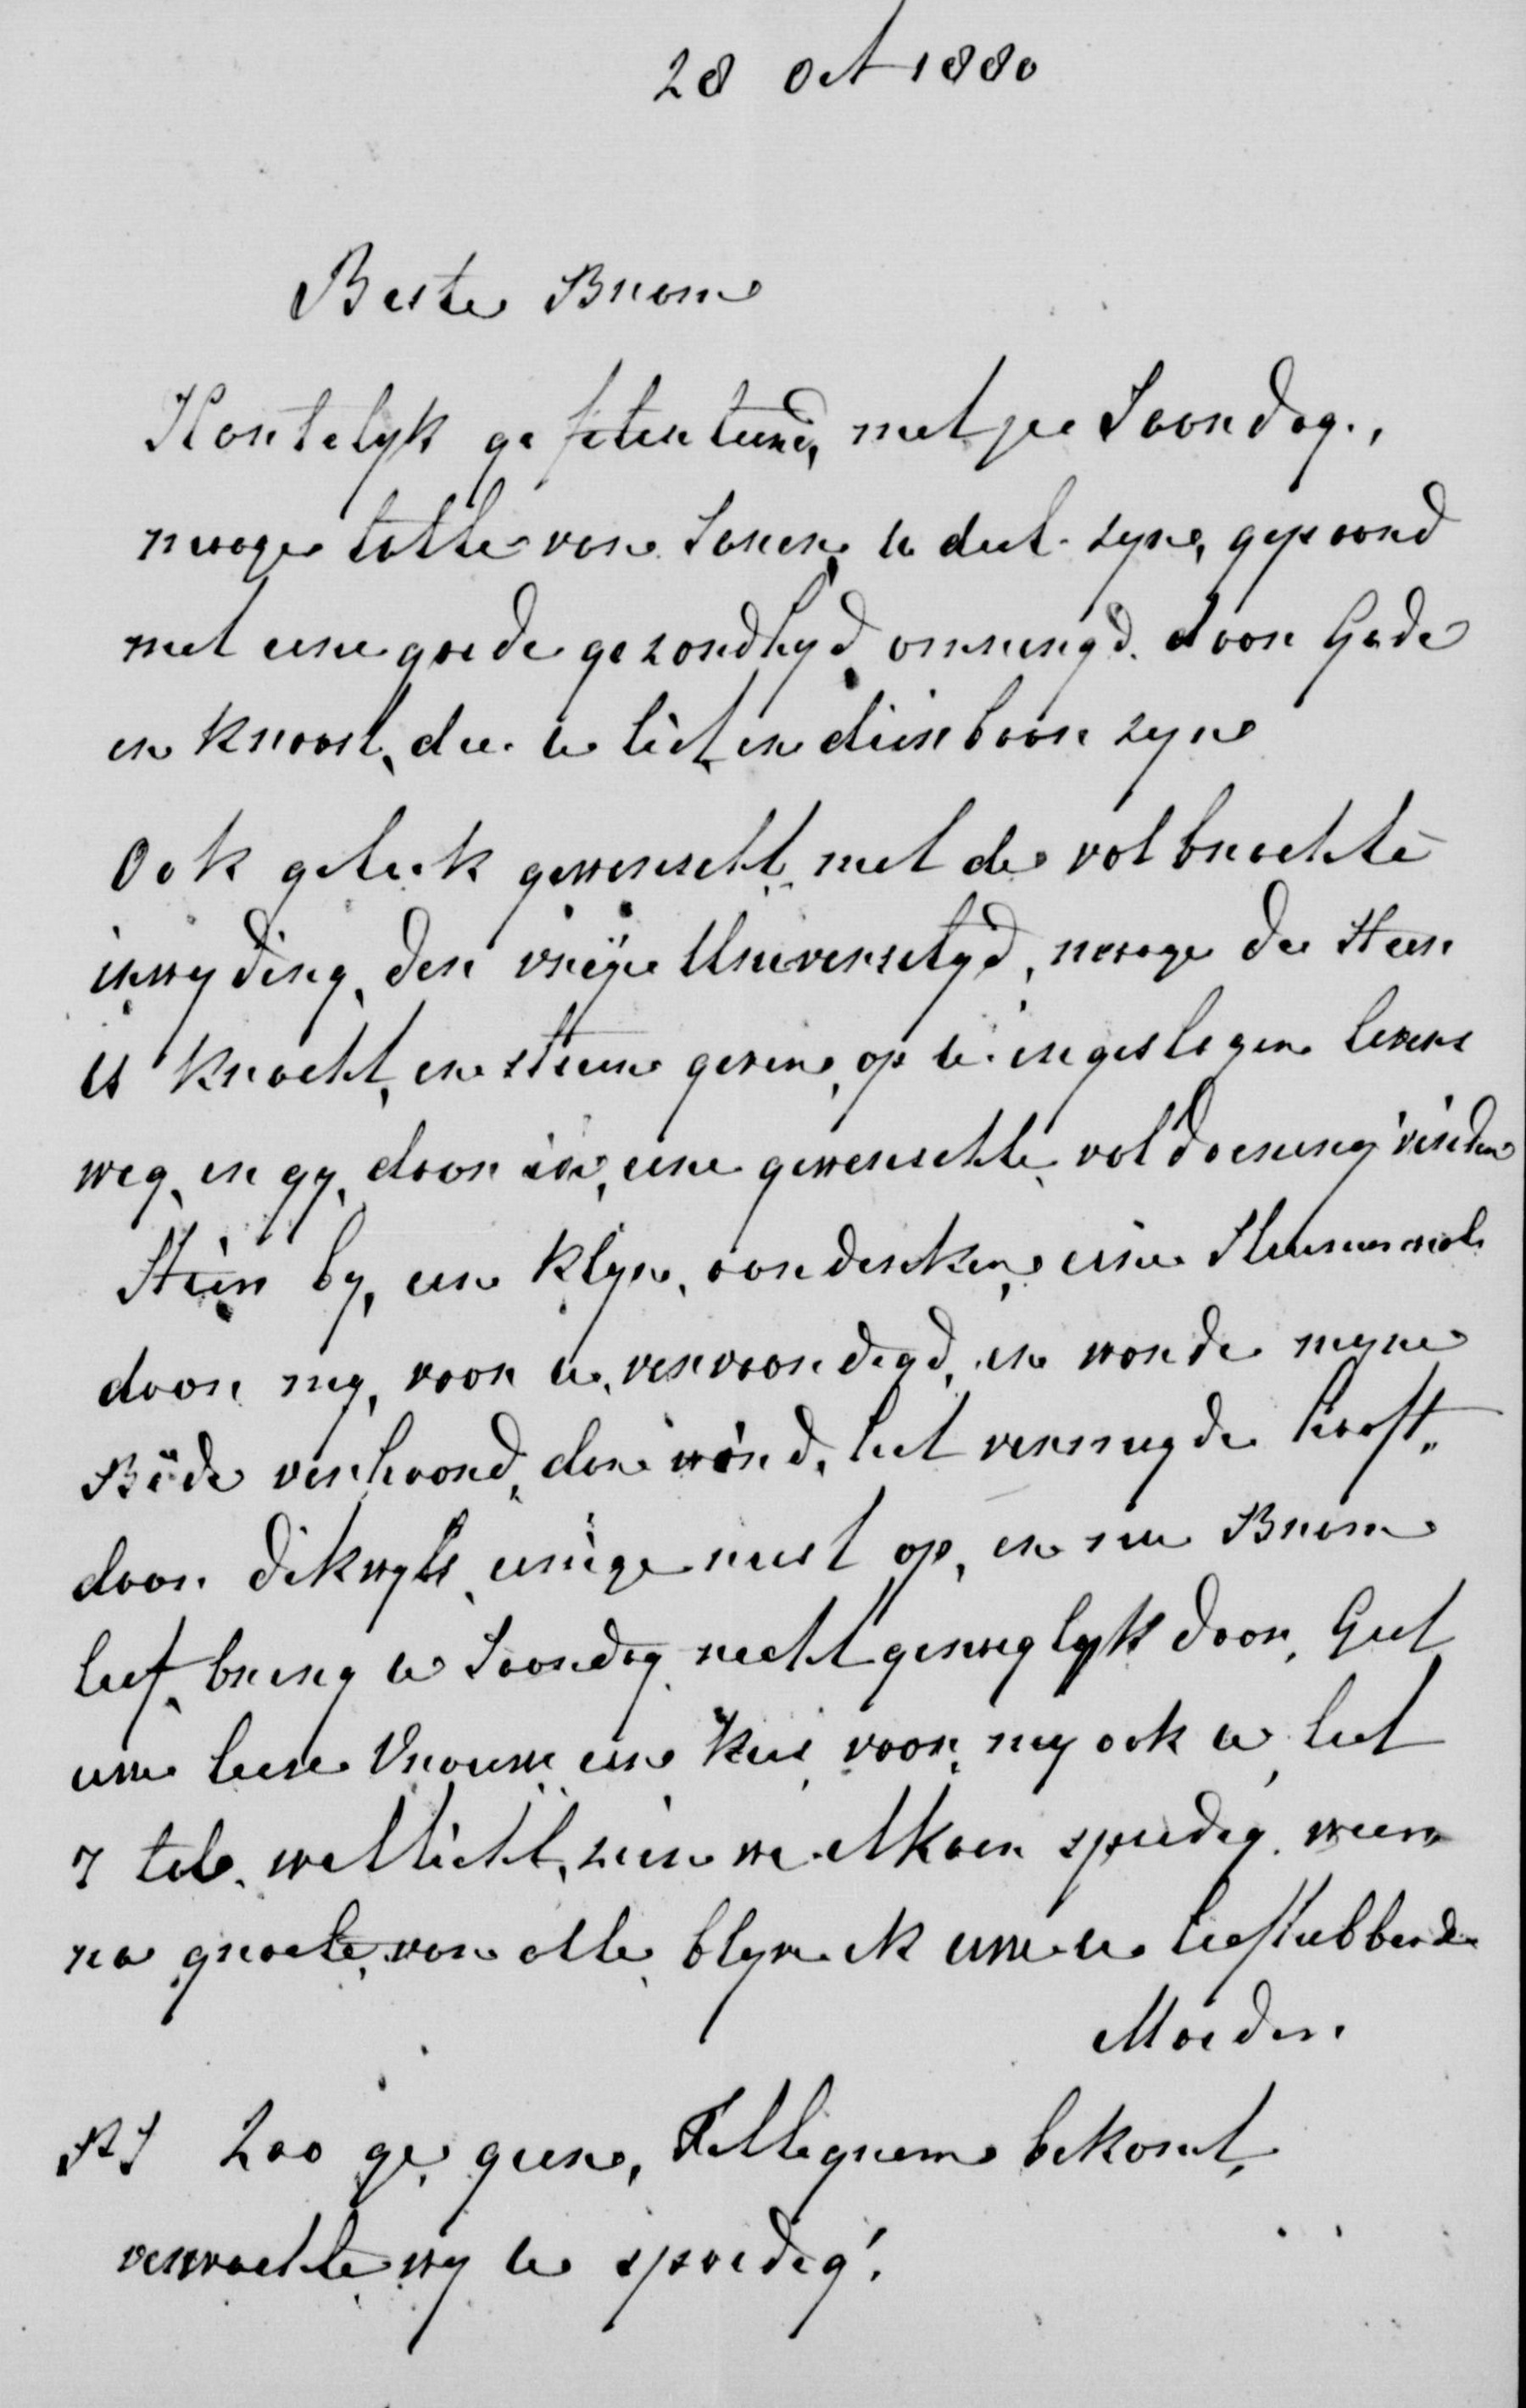 28 Oct 1880
Beste Bram
Hartelyk gefeliciteerd, met je Jaardag.,
moge tatte van Jaren, u deel zyn, gepaard
met eene goede gezondhyd, omringd. door Gade
en kroost, die u lief en dierbaar zyn
Ook geluk gewenscht, met de volbrachte
inwyding, der vrije Universityd, moge de Heer
U kracht, en steun geven, op u. ingeslagen levens
weg, en gy, daar in, eene gewenschte, voldoening vinden
Hier by, een klyn, aandenken, eine
door my, voor u, vervaardigd, en worde myne
Bede verhoord, dan vind, het vermoeyde hooft,,
daar dikwyls, eenige rust op, en nu Bram
lief, breng u Jaardag recht genoeglyk door, Geef
uwe lieve Vrouw een kus, voor, my ook u, het
7 tal, wellicht, zien we elkaar spoedig. weer
na groete, van alle, blyve ik uwe u liefhebbende
Moeder.
PS Zoo ge, geen, Tellegram bekomt,
verwachte wy u spoedig!